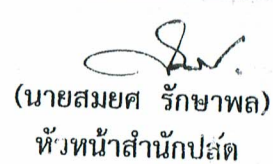 (นายสมยศ รักษาพล)
หัวหน้าสำนักปลัด